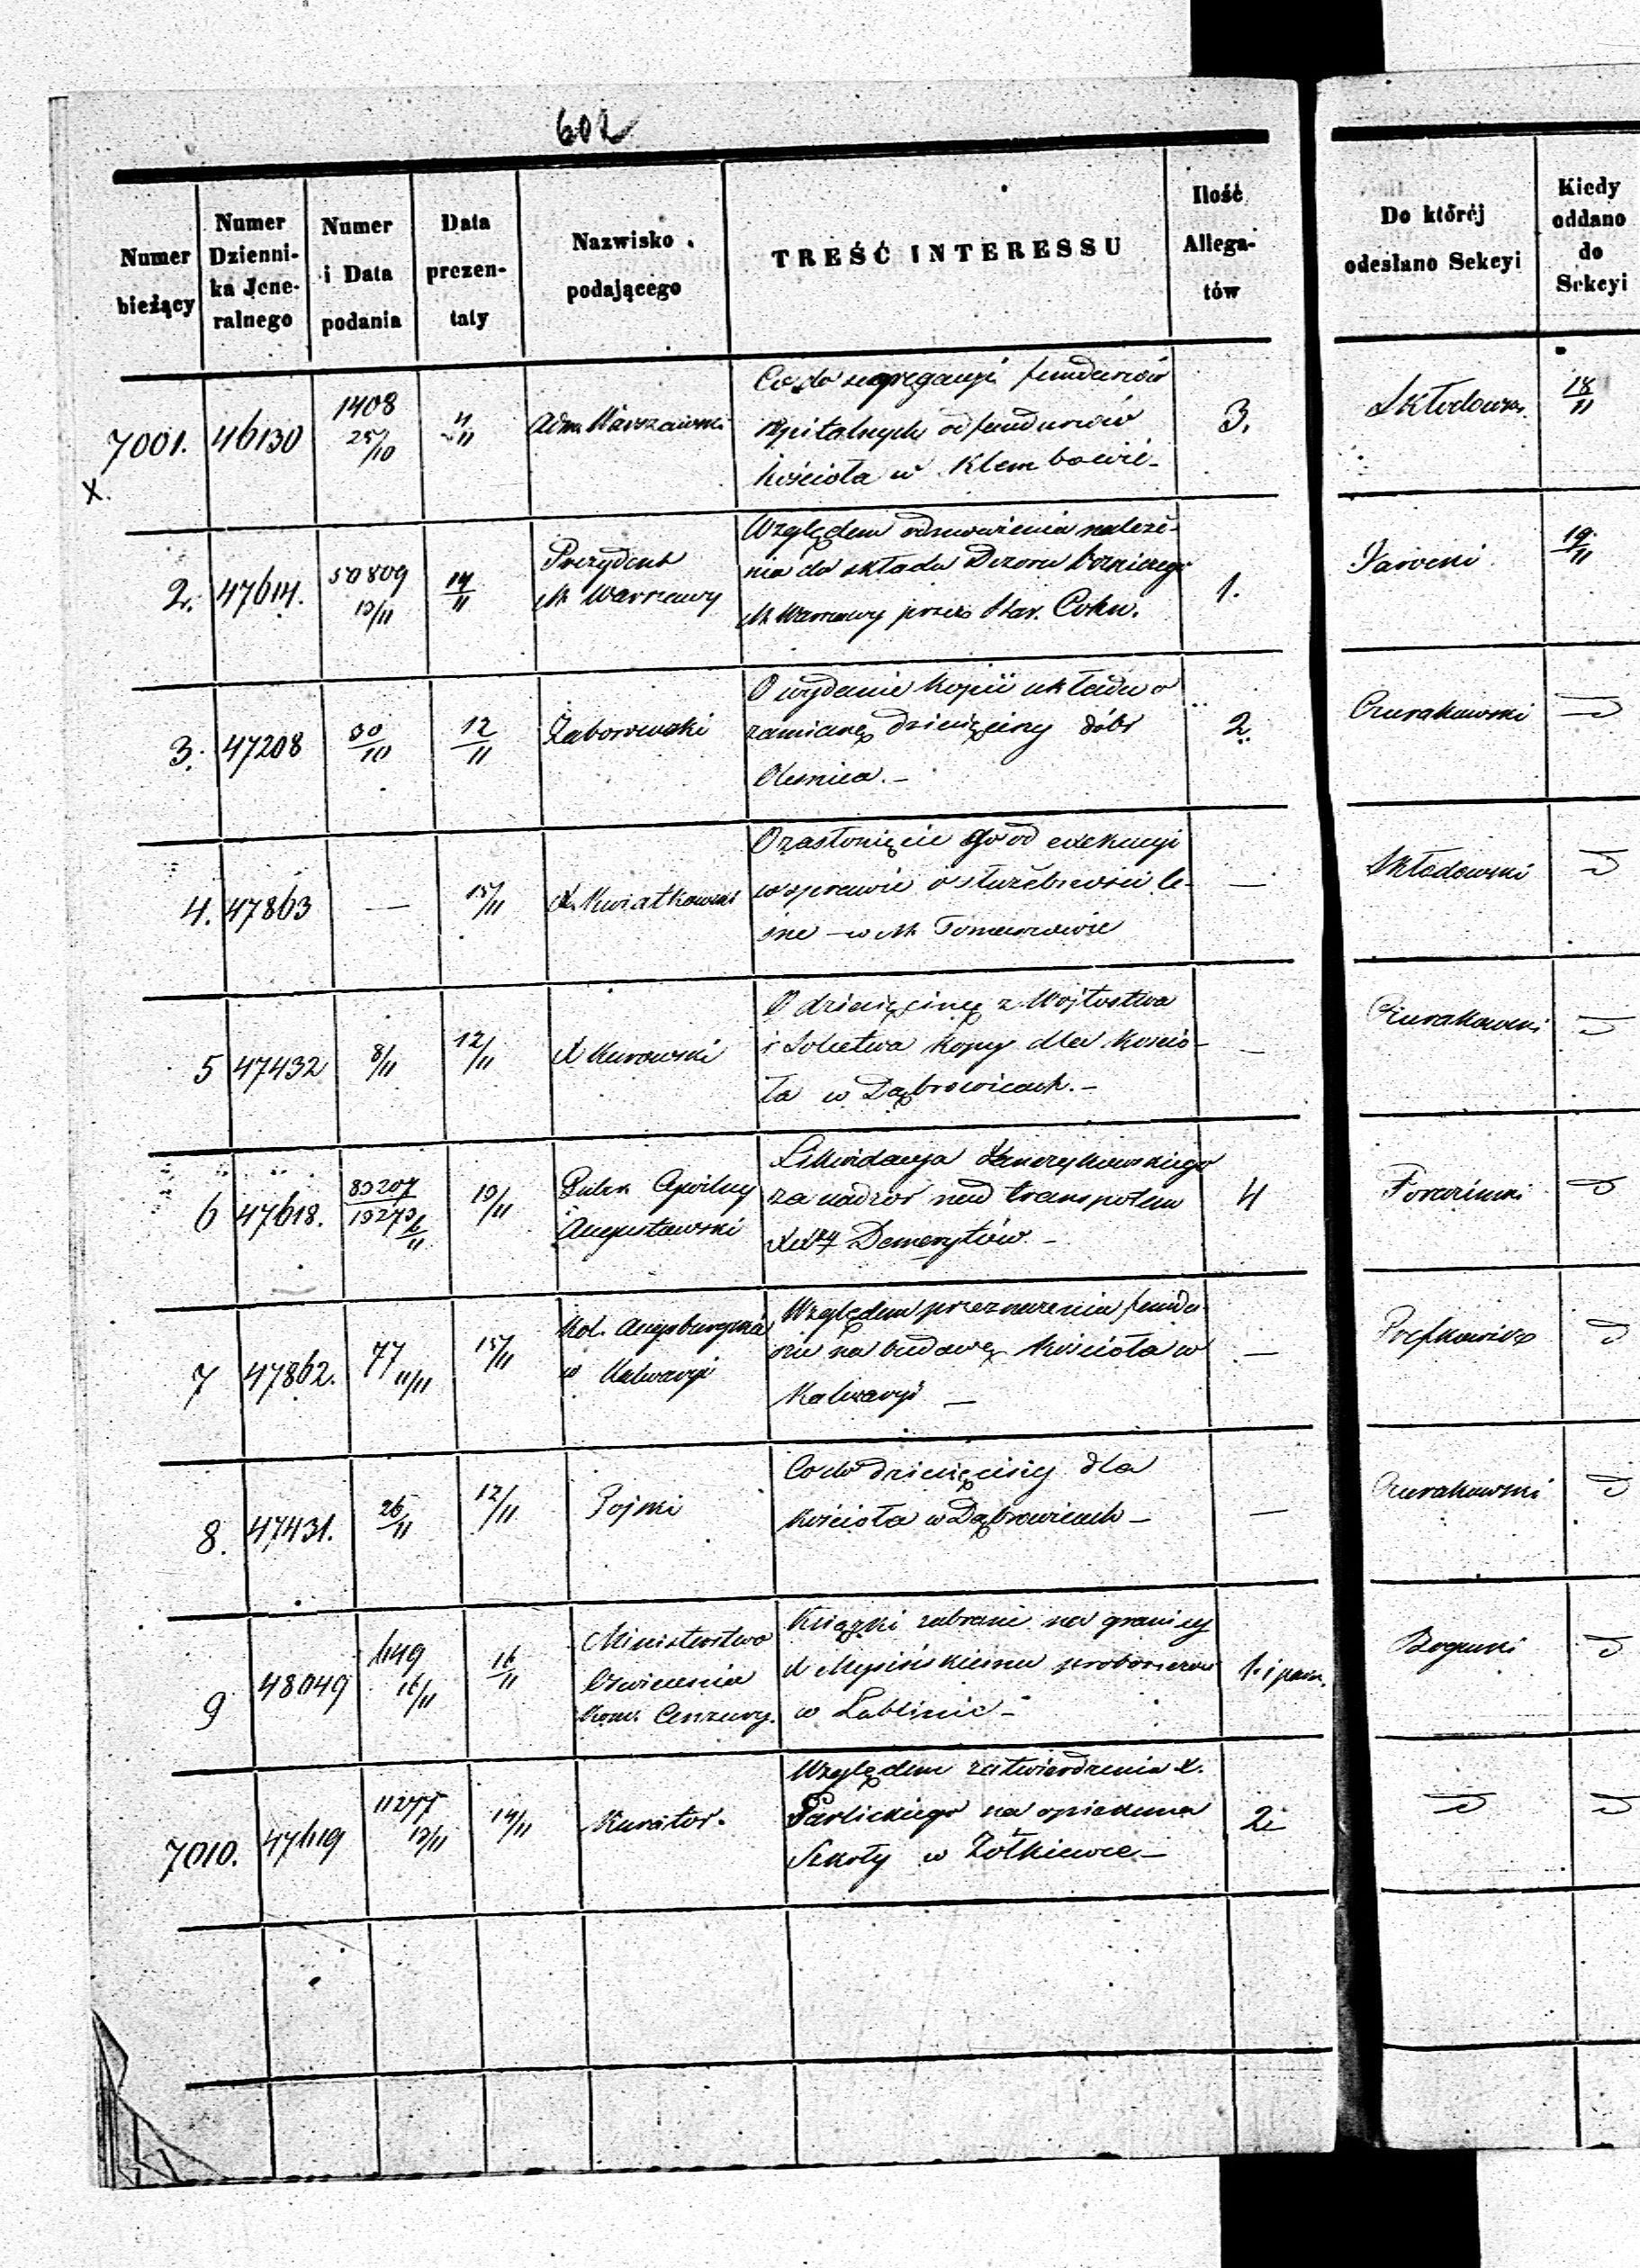 602
Numer bieżący
Numer Dzienni- ka Jene- ralnego
Numer i Data podania
Data prezen- taty
Nazwisko podającego
TREŚĆ INTERESSU
Ilość Allega- tów
Do któréj odesłano Sekcyi
Kiedy oddano do Sekcyi
7001. 46130 1408 25/10 11/11 Adm. Warszawski
Co do segregacyi funduszów
szpitalnych od funduszów
kościoła w Klembowie
3. Skłodowski 18/11
X.
2. 47614. 50809 13/11 14/11
Prezydent
M. Warszawy
Względem odmówienia należe-
nia do składu Dozoru Bożniczego
M. Warszawy przez Star. Cohn.
1. Jarocki 19/11
3. 47208 30/10 12/11 Zaborowski
O wydanie kopii układu o
zamianę dziesięciny dóbr
Olesnica.–
2. Czurakowski
4. 47863 — 15/11 X. Kwiatkowski
O zasłonięcie go od exekucyi
w sprawie o służebności le-
śne – w M. Tomaszowie
— Skłodowski
5 47432 8/11 12/11 X Kurowski
O dziesięcinę z Wójtostwa
i Sołectwa Kopy dla Kościo-
ła w Dąbrowicach.–
— Czurakowski
6 47618. 83207 13/11
Cywilny
Augustowski
Likwidacya
za nadzór nad transportem
XXży Demerytów –
4
7 47862. 77 11/11 15/11
Kol. Augsburgska
w Kalwaryi
Względem przeznaczenia fundu-
szu na budowę Kościoła w
Kalwaryi –
—
8. 47431. 26/11 12/11 Pojski
Co do dziesięciny dla
Kościoła w Dąbrowicach –
— Czurakowski
9 48049 1149 16/11 16/11
Ministerstwo
Oświecenia
Kom. Cenzury.
Książki zabrane na granicy
X proboszczowi
w Lublinie –
Bogucki
7010. 47619 11277 13/11 14/11 Kurator.
Względem zatwierdzenia X.
Garlickiego na opiekuna
Szkoły w Żółkiewce –
2